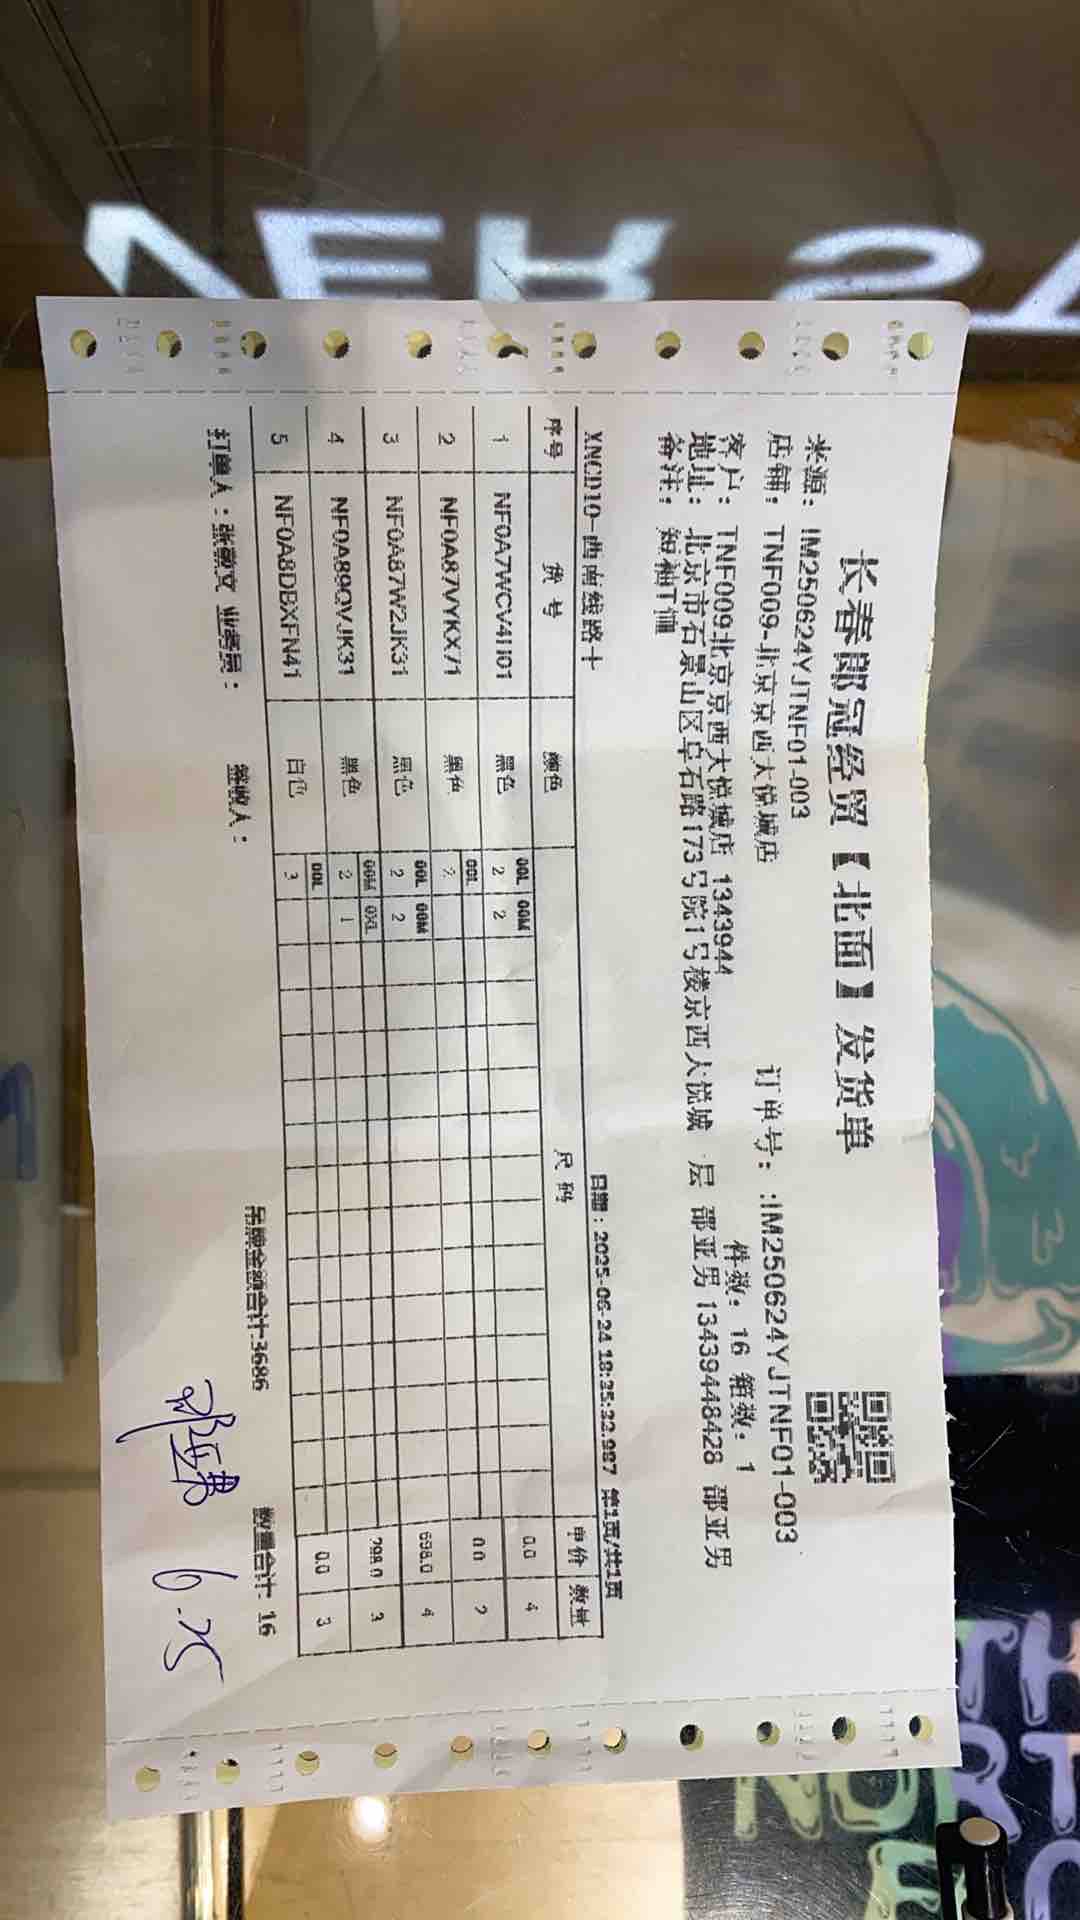 长春郎冠经贸【北面】发货单
来源：IM250624YJTNF01-003 订单号：:IM250624YJTNF01-003
店铺：TNF009-北京京西大悦城店 件数：16 箱数：1
客户：TNF009北京京西大悦城店 1343944
地址：北京市石景山区阜石路173号院1号楼京西大悦城 层 邵亚男 13439448428 邵亚男
备注：短袖T恤
XNCD10-西南线路十 日期：2025-06-24 18:35:32.987 第1页/共1页
序号 货号 颜色 尺码 单价 数量
00L 00M
1 NF0A7WCV4H01 黑色 2 2 0.0 4
00L
2 NF0A87VYKX71 黑色 2 0.0 2
00L 00M
3 NF0A87W2JK31 黑色 2 2 698.0 4
00M 0XL
4 NF0A89QVJK31 黑色 2 1 298.0 3
00L
5 NF0A8DBXFN41 白色 3 0.0 3
吊牌金额合计:3686 数量合计: 16
打单人：张 文 业务员： 签收人：
邵亚男 6.25
NER
TH
NORT